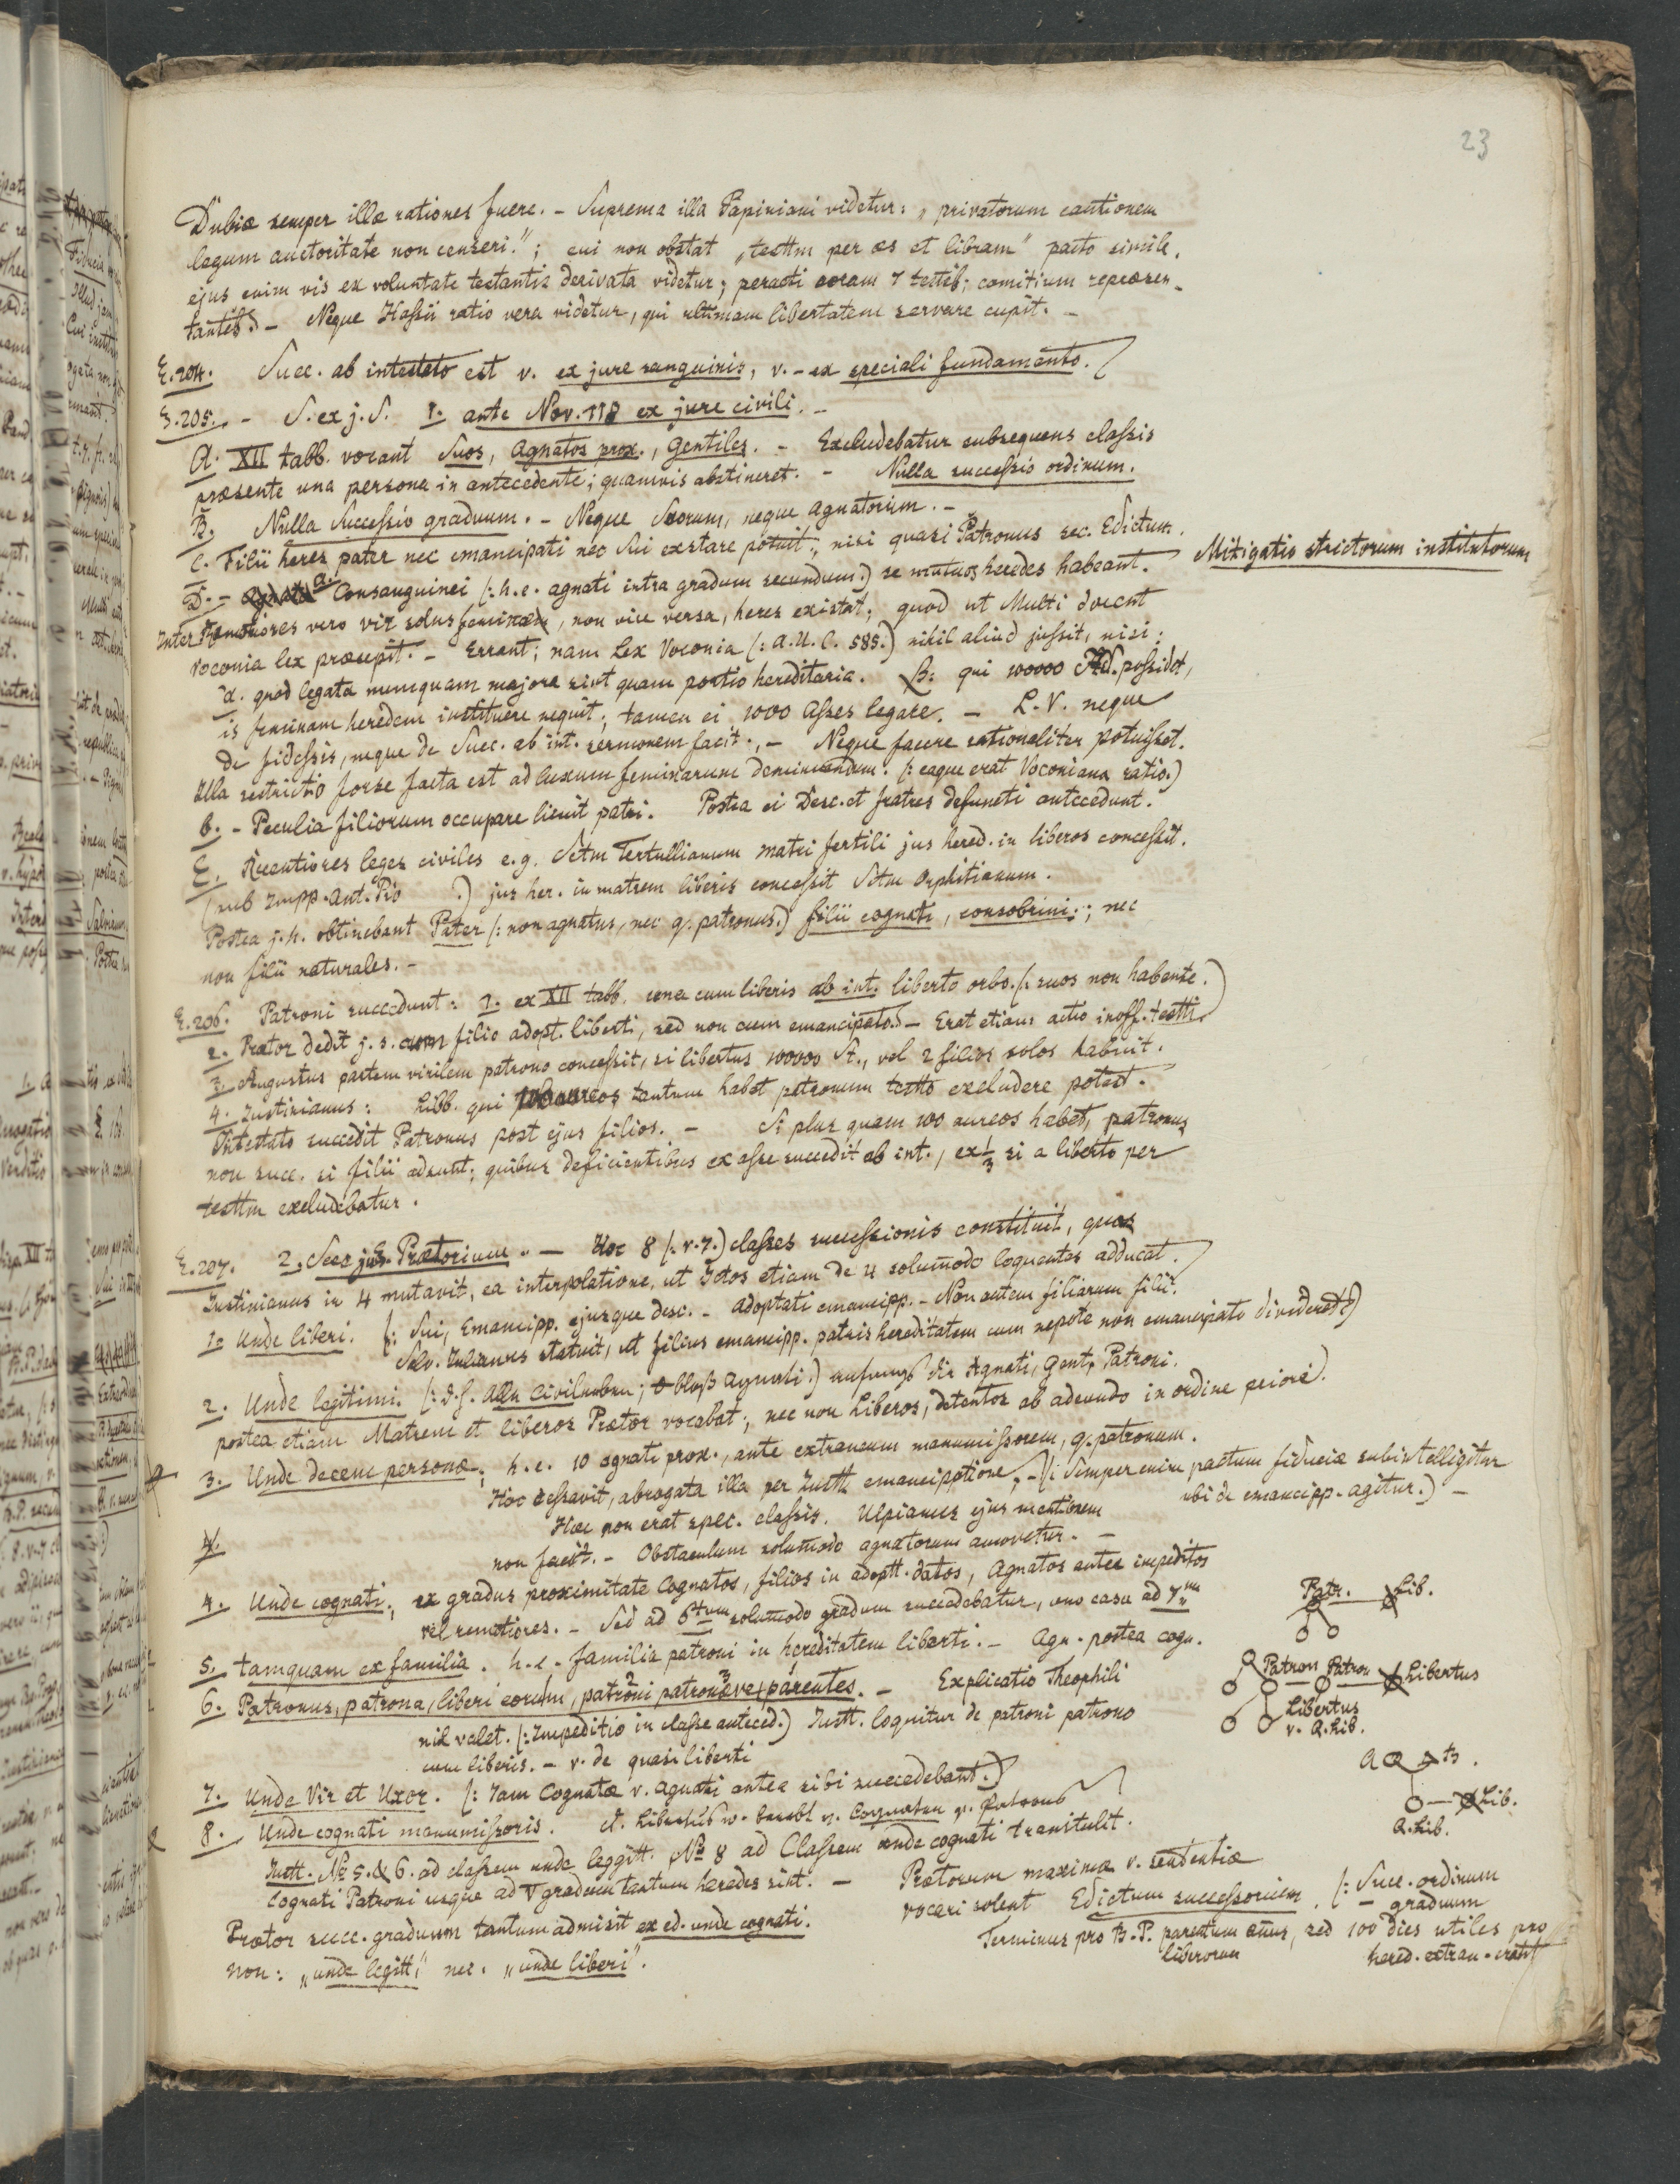 23
Dubiæ semper illæ rationes fuere. – Suprema illa Papiniani videtur: „privatorum cautionem
legum auctoritate non censeri."; cui non obstat „testtm per æs et libram" pacto simile.
ejus enim vis ex voluntate testantis derivata videtur; peracti coram 7 testib; comitium repræsen-
tantib. – Neque Hassii ratio vera videtur, qui ultimam libertatem servare cupit. –
§.204. Succ. ab intestato est v. ex jure sanguinis, v. – ex speciali fundamento.
§.205. – S. ex j. S. 1. ante Nov. 118 ex jure civili. –
A. XII tabb. vocant Suos, Agnatos prox., Gentiles. – Excludebatur subsequens classis
præsente una persona in antecedente; quamvis abstineret. – Nulla successio ordinum.
B. Nulla Successio graduum. – Neque Suorum, neque agnatorum. –
C. Filii heres pater nec emancipati nec sui exstare potuit, nisi quasi Patronus sec. Edictum.
Mitigatio strictorum institutorum
D. – a. Consanguinei (: h. e. agnati intra gradum secundum:) se mutuos heredes habeant.
Inter Remotiores vero vir solus, non vice versa, heres existat; quod ut Multi docent
Voconia lex præcepit. – Errant; nam Lex Voconia (: A. U. C. 585.) nihil aliud jussit, nisi:
α. quod legata numquam majora sint quam portio hereditaria. β. qui 100000 possidet,
is feminam heredem instituere nequit; tamen ei 1000 Asses legare. – L. V. neque
de fidessis, neque de Succ. ab int. sermonem facit. – Neque facere rationaliter potuisset.
Illa restrictio forse facta est ad luxum feminarum deminuendum. (: eaque erat Voconiana ratio.)
b. – Peculia filiorum occupare licuit patri. Postea ei Desc. et fratres defuncti antecedunt.
E. Recentiores leges civiles e.g. Sctm Tertullianum matri fertili jus hered. in liberos concessit.
(sub Impp. Ant. Pio .) jus her. in matrem liberis concessit Sctm Orphitianum.
Postea j. h. obtinebant Pater (: non agnatus, nec q. patronus.) filii cognati, consobrini; nec
non filii naturales. –
§.206. Patroni succedunt: 1. ex XII tabb. una cum liberis ab int. liberto orbo. (: suos non habente.)
2. Prætor dedit j. s. cum filio adopt. liberti, sed non cum emancipato. – Erat etiam actio inoff. testti
3. Augustus partem virilem patrono concessit, si libertus 100000 St., vel 2 filios solos habuit.
4. Justinianus: Libb. qui 100 aureos tantum habet patronum testto excludere potest.
Intestato succedit Patronus post ejus filios. – Si plus quam 100 aureos habet, patronus
non succ. si filii adsunt; quibus deficientibus ex asse succedit ab int., ex 1/3 si a liberto per
testtm excludebatur.
§.207. 2. Succ jus Prætorium. – Hoc 8 (: v. 7.) classes successionis constituit, quas
Justinianus in 4 mutavit, ea interpolatione, ut Jctos etiam de 4 solumodo loquentes adducat.
1. Unde liberi. (: Sui, Emancipp. ejusque desc. – adoptati emancipp. – Non autem filiarum filii.
Salv. Julianus statuit, ut filius emancipp. patris hereditatem cum nepote non emancipato divideret.)
2. Unde legitimi. (: d. h. alle Civilerben; bloß Agnati.) die Agnati, Gent, Patroni.
postea etiam Matrem et liberos Prætor vocabat; nec non Liberos, detentos ab adeundo in ordine priori.
3. Unde decem personæ; h. e. 10 cgnati prox., ante extraneum manumissorem, q. patronum.
Hoc cessavit, abrogata illa per Justt emancipatione; – (: Semper enim pactum fiduciæ subintelligitur
ubi de emancipp. agitur.) –
Hæc non erat spec. classis. Ulpianus ejus mentionem
non facit. – Obstaculum solumodo agnatorum amovetur. –
4. Unde cognati; ex gradus proximitate Cognatos, filios in adoptt. datos, Agnatos antea impeditos
vel remotiores. – Sed ad 6tum solumodo gradum succedebatur, uno casu ad 7um
5. tamquam ex familia. h. e. familia patroni in hereditatem liberti. – Agn. postea cogn.
6. Patronus, patrona, liberi eorum, patroni patronæve, parentes. – Explicatio Theophili
nil valet. (: Impeditio in classe anteced.) Justt. loquitur de patroni patrono
cum liberis. – v. de quasi liberti
7. Unde Vir et Uxor. (: Jam Cognatæ v. agnati antea sibi succedebant.)
8. Unde cognati manumissoris.
Justt. No 5. & 6. ad classem unde legitt. No 8 ad Classem unde cognati transtulit.
Cognati Patroni usque ad V gradum tantum heredes sint. – Prætorum maximæ v. sententiæ
vocari solent Edictum successorium. (: Succ. ordinum
– graduum
Prætor succ. graduum tantum admisit ex ed. unde cognati.
non: „unde legitt," nec. „unde liberi".
Terminus pro B. P. parentum annus, sed 100 dies utiles pro
liberorum hered. extran.
Patr. Lib.
Patron Patron Libertus
Libertus
v. a. Lib.
A B.
Lib.
a. Lib.